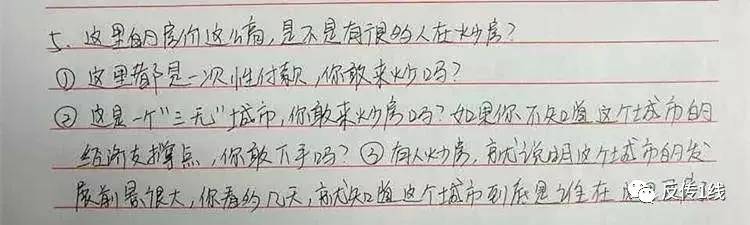 5、这里的房价这么高,是不是有很多人在炒房?
① 这里都是一次性付款,你敢来炒吗?
② 这是一个"三无"城市,你敢来炒房吗?如果你不知道这个城市的
经济支撑点,你敢下手吗?③ 有人炒房,就说明这个城市的发
展前景很大,你看的几天,就知道这个城市到底是谁在
反传1线